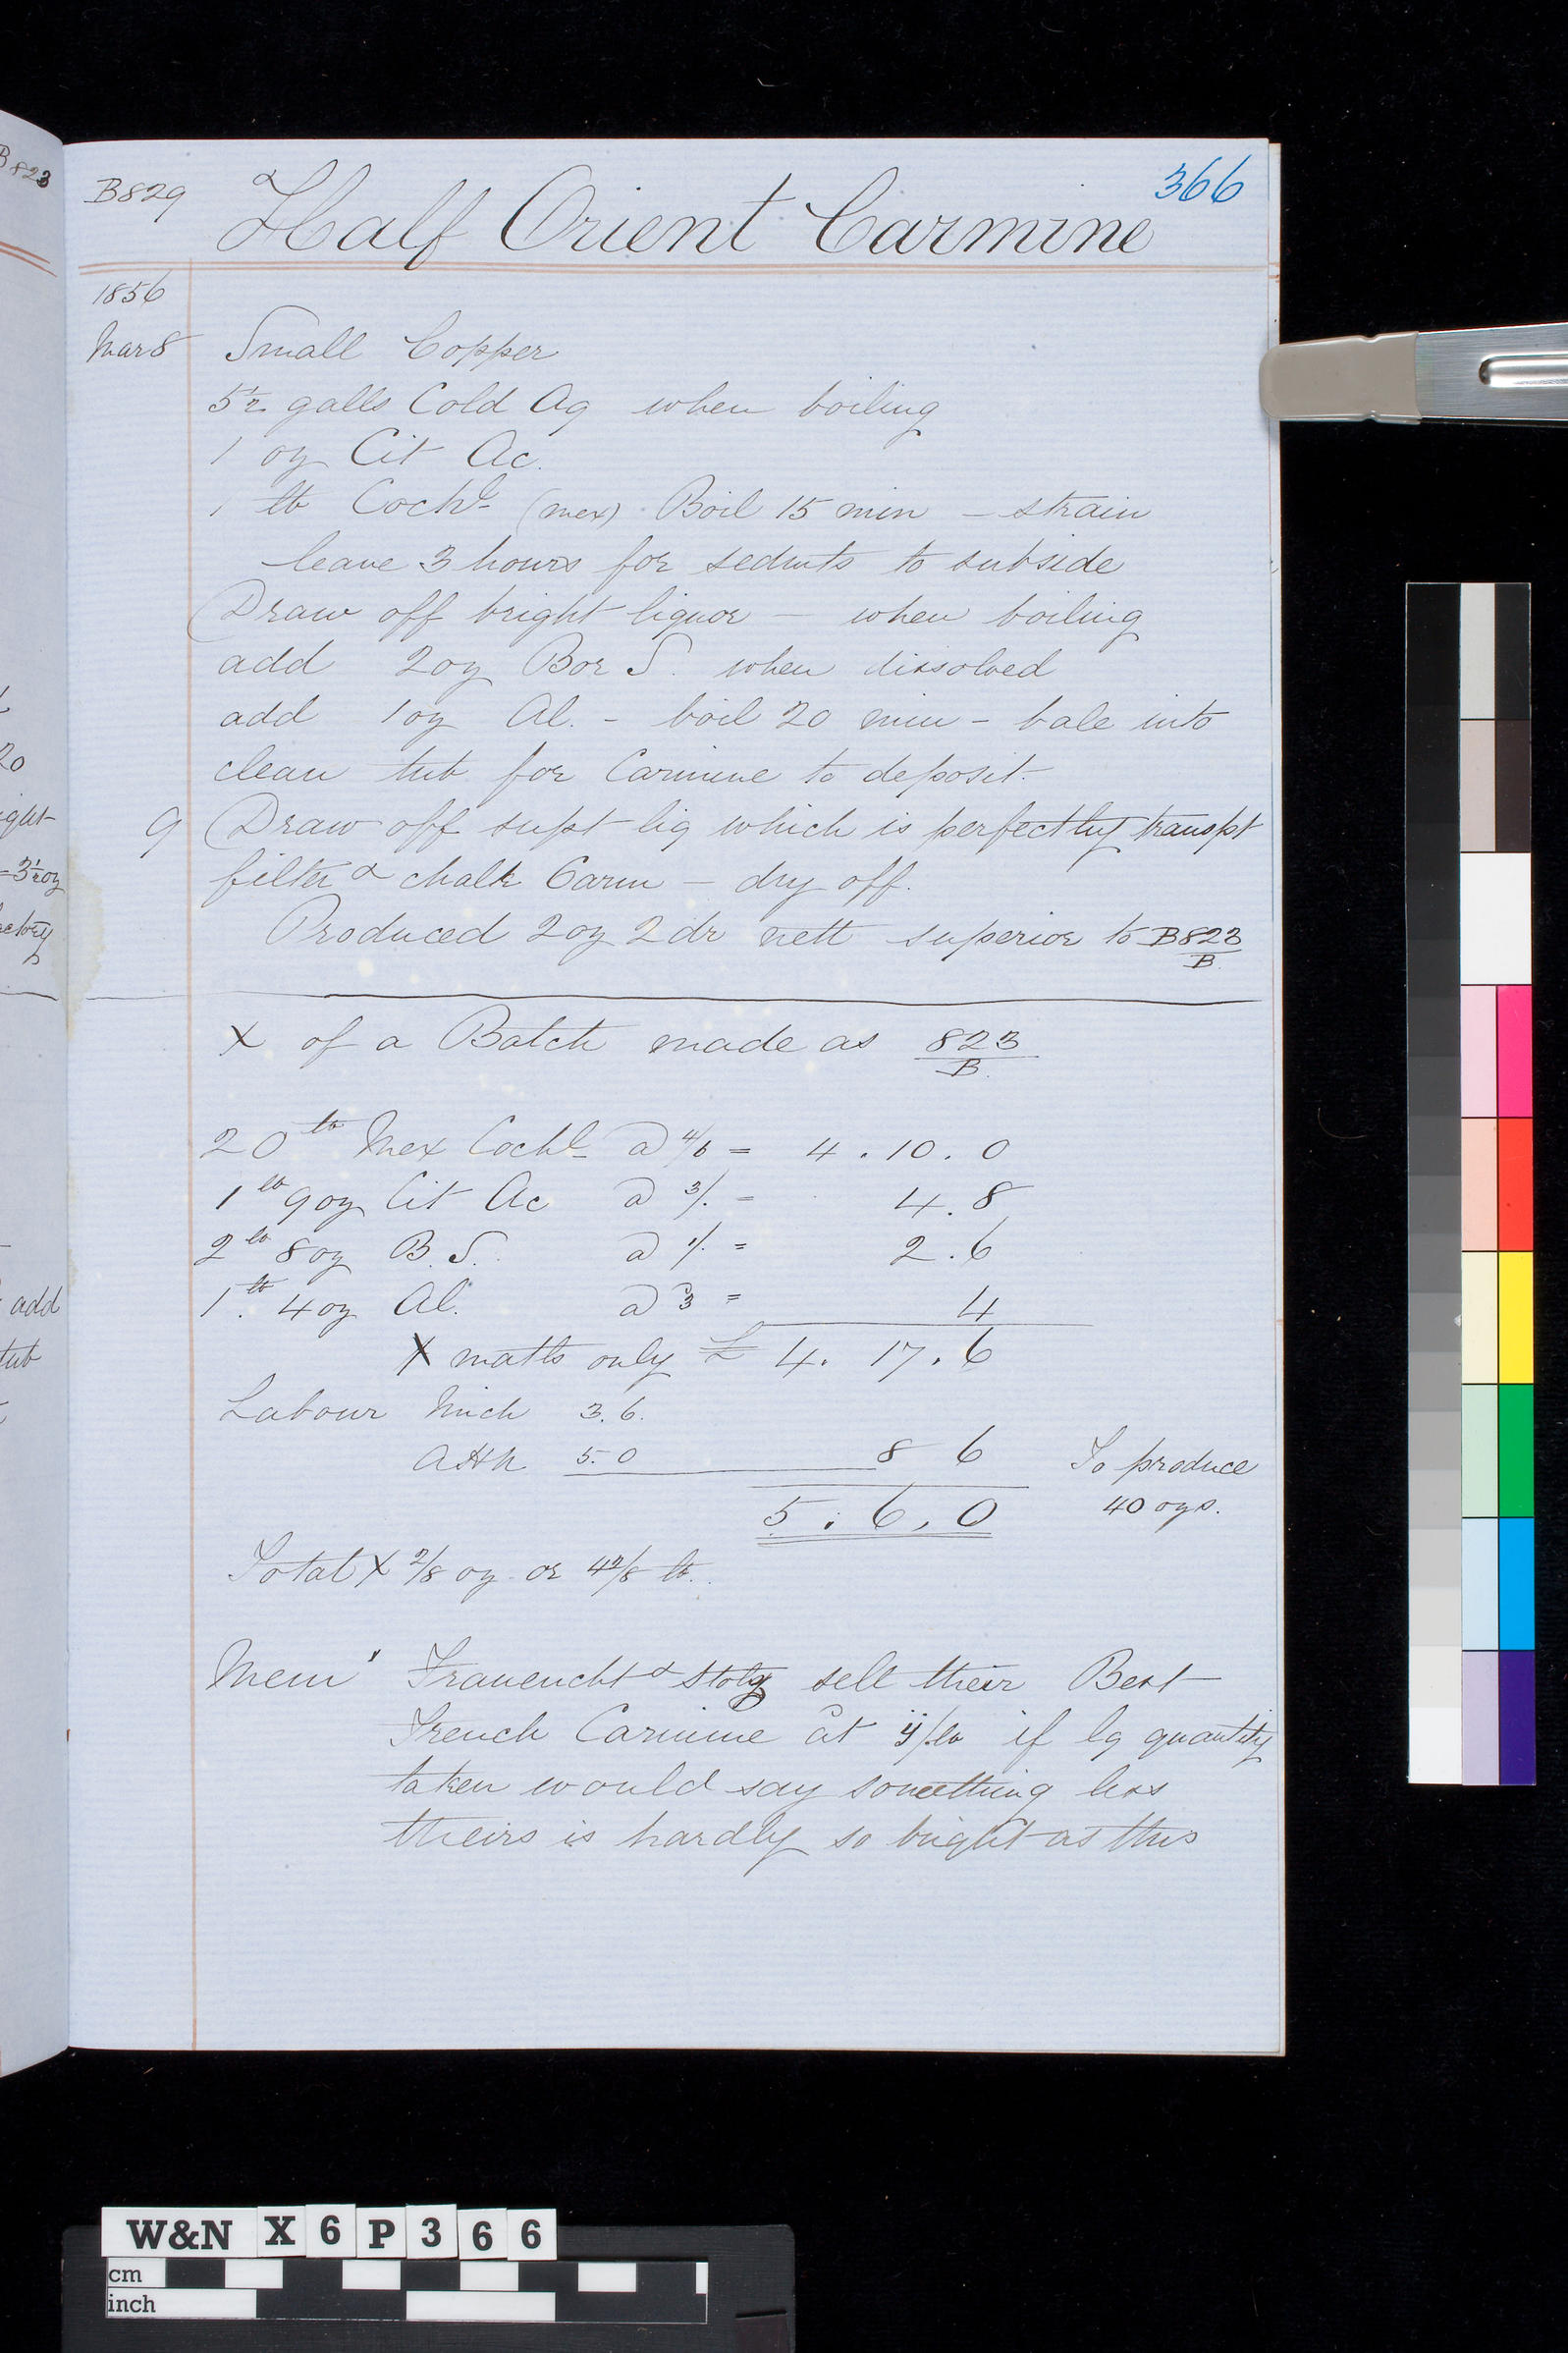 B823
B829
366
Half Orient Carmine
1856
Mar 8 Small Copper
5½ galls Cold Aq when boiling
1 oz Cit Ac.
1 lb Cochl (mex) Boil 15 min – strain
leave 3 hours for sedmts to subside
Draw off bright liquor – when boiling
add 2oz Bor S. when dissolved
add 1oz Al. – boil 20 min – bale into
clean tub for Carmine to deposit.
9 Draw off supt liq which is perfectly transpt
filter & chalk Carm – dry off.
Produced 2oz 2dr nett superior to B823
B.
X of a Batch made as 823
B.
20 lb Mex Cochl @ 4/6 = 4 . 10 . 0
1 lb 9oz Cit Ac @ 3/. = 4 . 8
2 lb 8oz B. S. @ 1/. = 2 . 6
1 lb 4oz Al. @ 3 = 4
X matls only £ 4. 17. 6
Labour Mich 3. 6.
5. 0 8 6 To produce
5 . 6 . 0 40 ozs.
Total X 2/8 oz or 42/8 lb.
Mem Frauencht & Stolz sell their Best
French Carmine at /. lb if lg quantity
taken would say something less
theirs is hardly so bright as this
20
ight
– 3½oz
actory
add
tub
W&N X 6 P 3 6 6
cm
inch